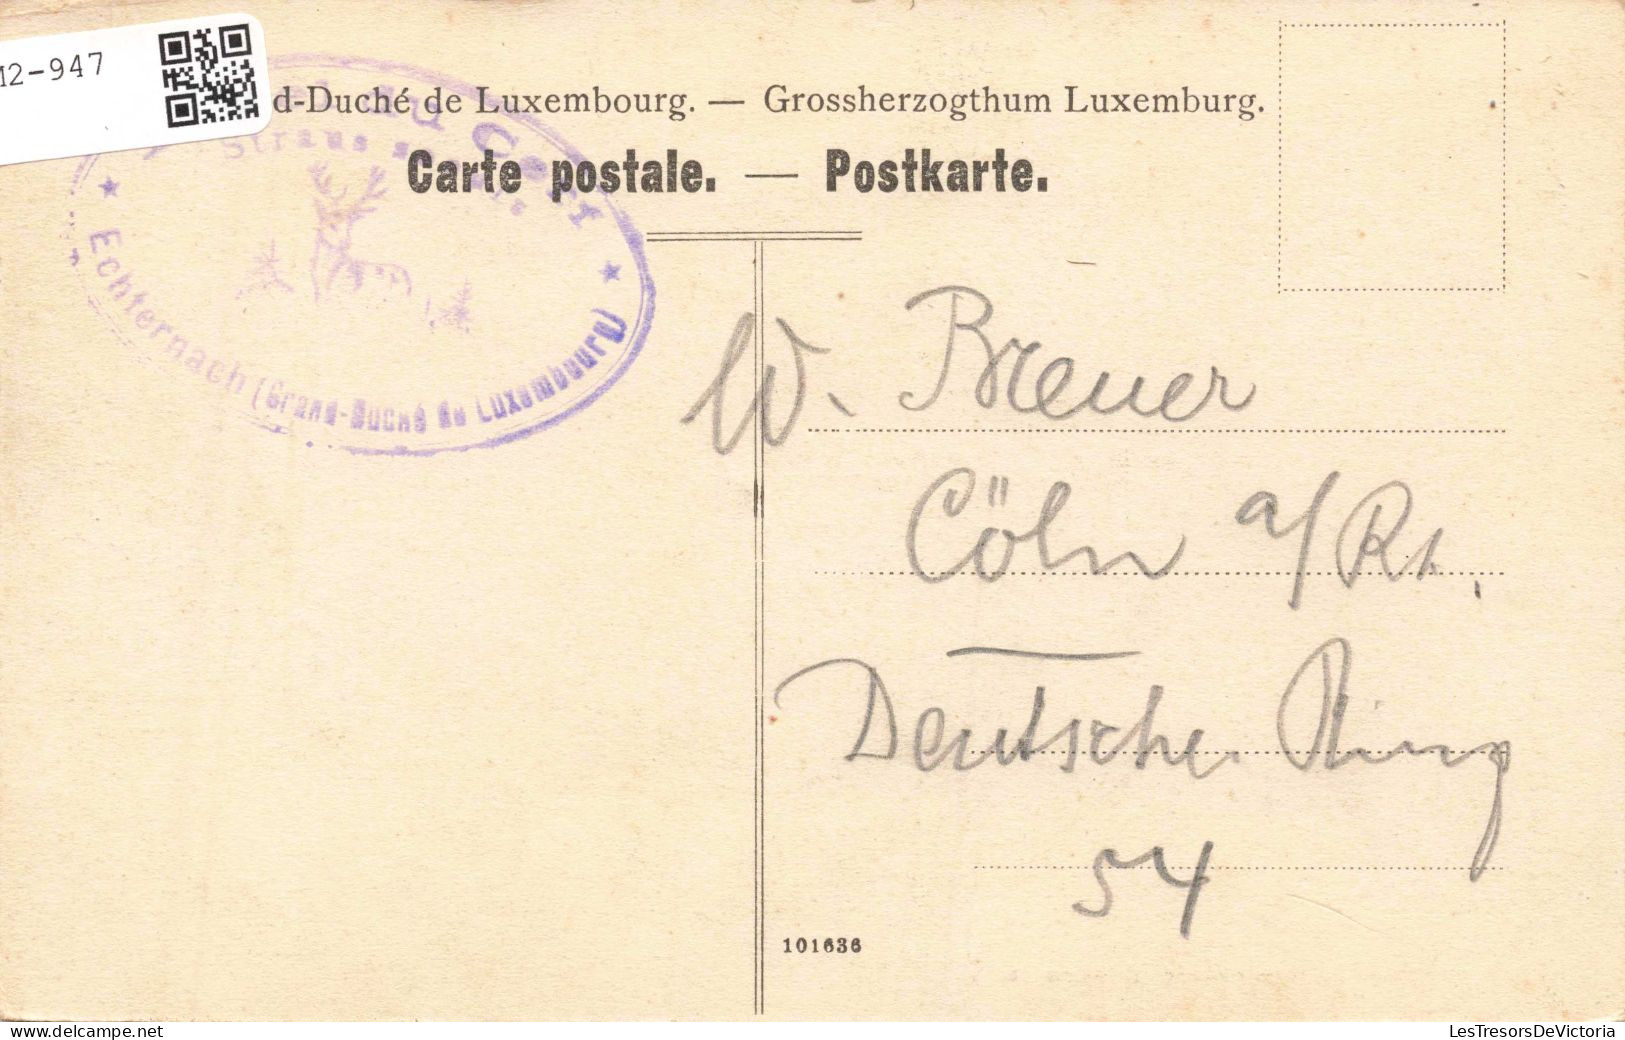 M2-947
d-Duché de Luxembourg. — Grossherzogthum Luxemburg.
Carte postale. — Postkarte.
au Cerf
Straus
★ Echternach (Grand-Duché de Luxembourg) ★
W. Breuer
Cöln a/Rh.
Deutscher Ring
54
101636
LesTresorsDeVictoria